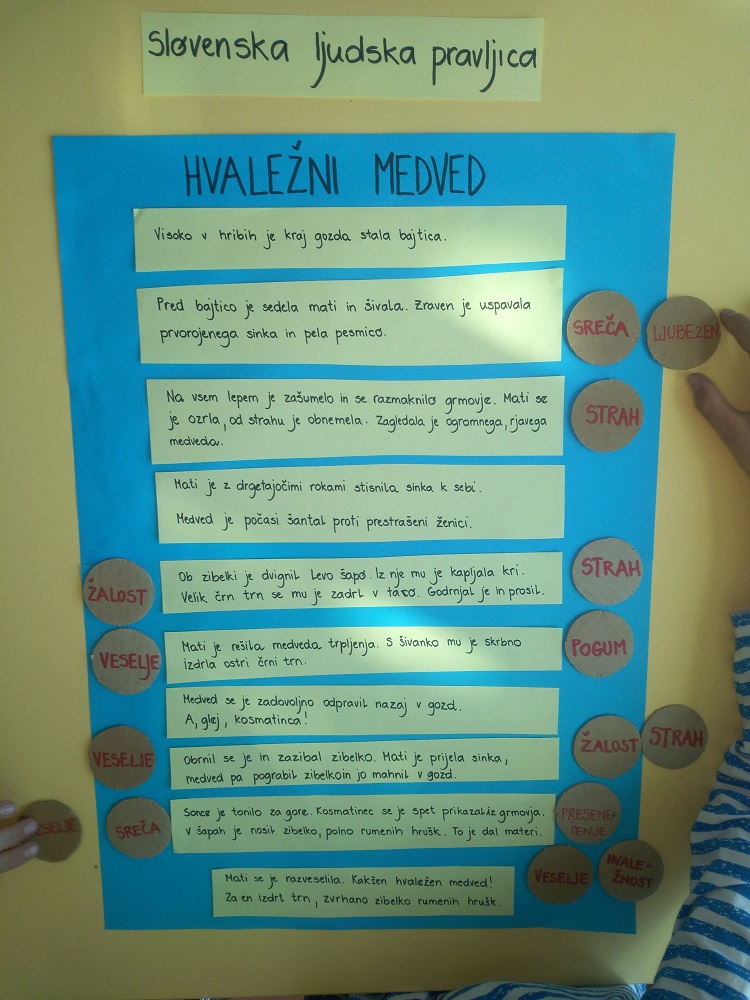 Slovenska ljudska pravljica
HVALEŽNI MEDVED
Visoko v hribih je kraj gozda stala bajtica.
Pred bajtico je sedela mati in šivala. Zraven je uspavala
prvorojenega sinka in pela pesmico.
SREČA
LJUBEZEN
Na vsem lepem je zašumelo in se razmaknilo grmovje. Mati se
je ozrla, od strahu je obnemela. Zagledala je ogromnega, rjavega
medveda.
STRAH
Mati je z drgetajočimi rokami stisnila sinka k sebi.
Medved je počasi šantal proti prestrašeni ženici.
ŽALOST
Ob zibelki je dvignil levo šapo. Iz nje mu je kapljala kri.
Velik črn trn se mu je zadrl v taco. Godrnjal je in prosil.
STRAH
VESELJE
Mati je rešila medveda trpljenja. S šivanko mu je skrbno
izdrla ostri črni trn.
POGUM
Medved se je zadovoljno odpravil nazaj v gozd.
A, glej, kosmatinca!
VESELJE
Obrnil se je in zazibal zibelko. Mati je prijela sinka,
medved pa pograbil zibelko in jo mahnil v gozd.
ŽALOST
STRAH
SREČA
Sonce je tonilo za gore. Kosmatinec se je spet prikazal iz grmovja.
V šapah je nosil zibelko, polno rumenih hrušk. To je dal materi.
PRESENE-
ČENJE
Mati se je razveselila. Kakšen hvaležen medved!
Za en izdrt trn, zvrhano zibelko rumenih hrušk.
VESELJE
HVALE-
ŽNOST